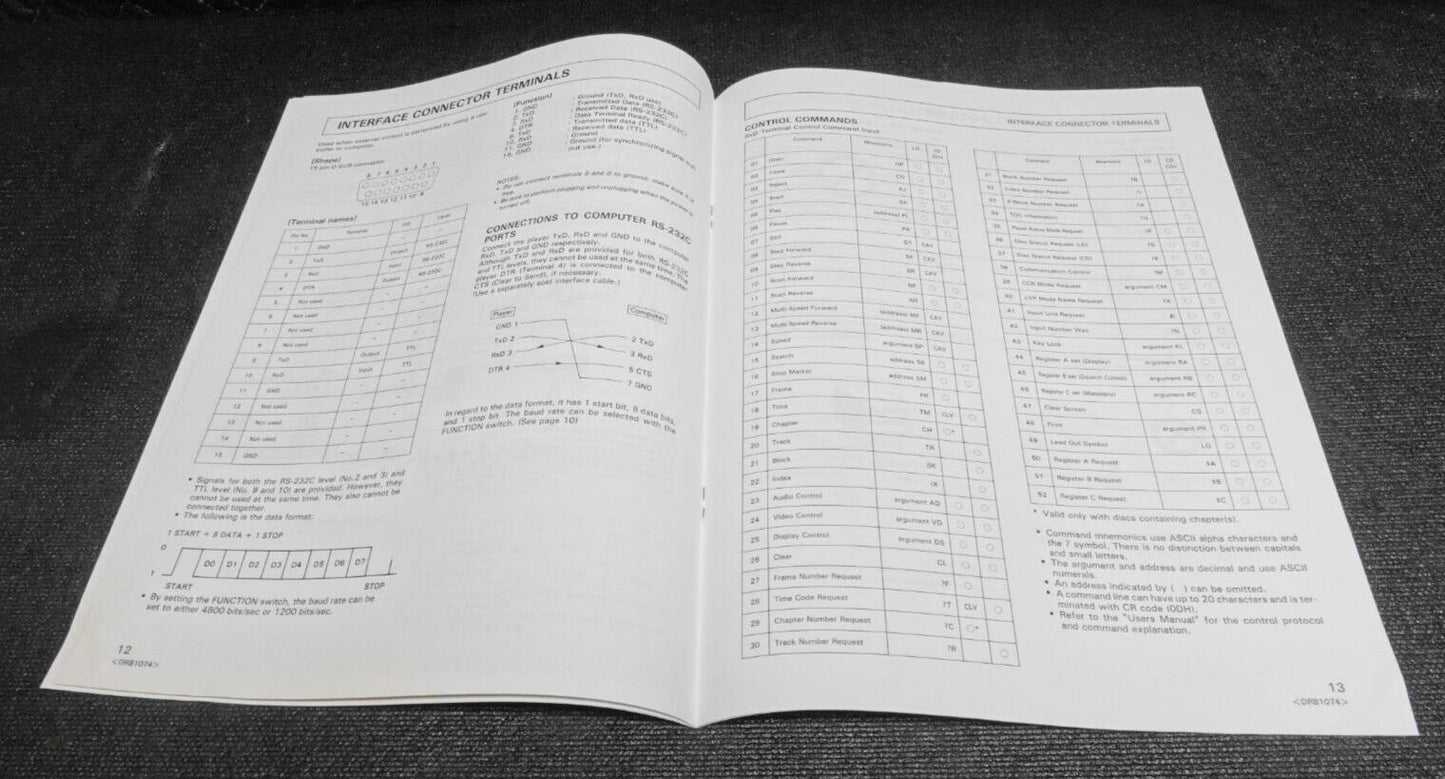 INTERFACE CONNECTOR TERMINALS
Used when external control is performed by using a con-
troller or computer.
[Shape]
15 pin D-SUB connector
8 7 6 5 4 3 2 1
15 14 13 12 11 10 9
[Terminal names]
Pin No. Terminal I/O Level
1 GND
2 TxD Output RS-232C
3 RxD Input RS-232C
4 DTR Output RS-232C
5 Not used – –
6 Not used – –
7 Not used – –
8 Not used – –
9 TxD Output TTL
10 RxD Input TTL
11 GND
12 Not used – –
13 Not used – –
14 Not used – –
15 GND
• Signals for both the RS-232C level (No.2 and 3) and
TTL level (No. 9 and 10) are provided. However, they
cannot be used at the same time. They also cannot be
connected together.
• The following is the data format:
1 START + 8 DATA + 1 STOP
0
1
D0 D1 D2 D3 D4 D5 D6 D7
START STOP
• By setting the FUNCTION switch, the baud rate can be
set to either 4800 bits/sec or 1200 bits/sec.
12
<DRB1074>
[Function]
1. GND : Ground (TxD, RxD use)
2. TxD : Transmitted Data (RS-232C)
3. RxD : Received Data (RS-232C)
4. DTR : Data Terminal Ready (RS-232C)
9. TxD : Transmitted data (TTL)
10. RxD : Received data (TTL)
11. GND : Ground
15. GND : Ground (for synchronizing signal but
not use.)
NOTES:
• Do not connect terminals 5 and 6 to ground; make sure it is
free.
• Be sure to perform plugging and unplugging when the power is
turned off.
CONNECTIONS TO COMPUTER RS-232C
PORTS
Connect the player TxD, RxD and GND to the computer
RxD, TxD and GND respectively.
Although TxD and RxD are provided for both RS-232C
and TTL levels, they cannot be used at the same time. The
player DTR (Terminal 4) is connected to the computer
CTS (Clear to Send), if necessary.
(Use a separately sold interface cable.)
Player Computer
GND 1
TxD 2 2 TxD
RxD 3 3 RxD
DTR 4 5 CTS
7 GND
In regard to the data format, it has 1 start bit, 8 data bits,
and 1 stop bit. The baud rate can be selected with the
FUNCTION switch. (See page 10)
INTERFACE CONNECTOR TERMINALS
CONTROL COMMANDS
RxD Terminal Control Command Input
Command Mnemonic LD CD CDV
01 Open OP
02 Close CO
03 Reject RJ
04 Start SA
05 Play (address) PL
06 Pause PA
07 Still ST CAV
08 Step Forward SF CAV
09 Step Reverse SR CAV
10 Scan Forward NF
11 Scan Reverse NR
12 Multi-Speed Forward (address) MF CAV
13 Multi-Speed Reverse (address) MR CAV
14 Speed argument SP CAV
15 Search address SE
16 Stop Marker address SM
17 Frame FR
18 Time TM CLV
19 Chapter CH *
20 Track TR
21 Block BK
22 Index IX
23 Audio Control argument AD
24 Video Control argument VD
25 Display Control argument DS
26 Clear CL
27 Frame Number Request ?F
28 Time Code Request ?T CLV
29 Chapter Number Request ?C *
30 Track Number Request ?R
Command Mnemonic LD CD CDV
31 Block Number Request ?B
32 Index Number Request ?I
33
34 TOC Information ?Q
35 Player Active Mode Request ?P
36 Disc Status Request (LD) ?D
37 Disc Status Request (CD) ?K
38 Communication Control ?M
39 CCR Mode Request argument CM
40 LVP Mode Name Request ?X
41 Input Unit Request #I
42 Input Number Wait ?N
43 Key Lock argument KL
44 Register A set (Display) argument RA
45 Register B set (Squelch Control) argument RB
46 Register C set (Miscellany) argument RC
47 Clear Screen CS
48 Print argument PR
49 Lead Out Symbol LO
50 Register A Request $A
51 Register B Request $B
52 Register C Request $C
* Valid only with discs containing chapter(s).
• Command mnemonics use ASCII alpha characters and
the ? symbol. There is no distinction between capitals
and small letters.
• The argument and address are decimal and use ASCII
numerals.
• An address indicated by ( ) can be omitted.
• A command line can have up to 20 characters and is ter-
minated with CR code (0DH).
• Refer to the "Users Manual" for the control protocol
and command explanation.
13
<DRB1074>